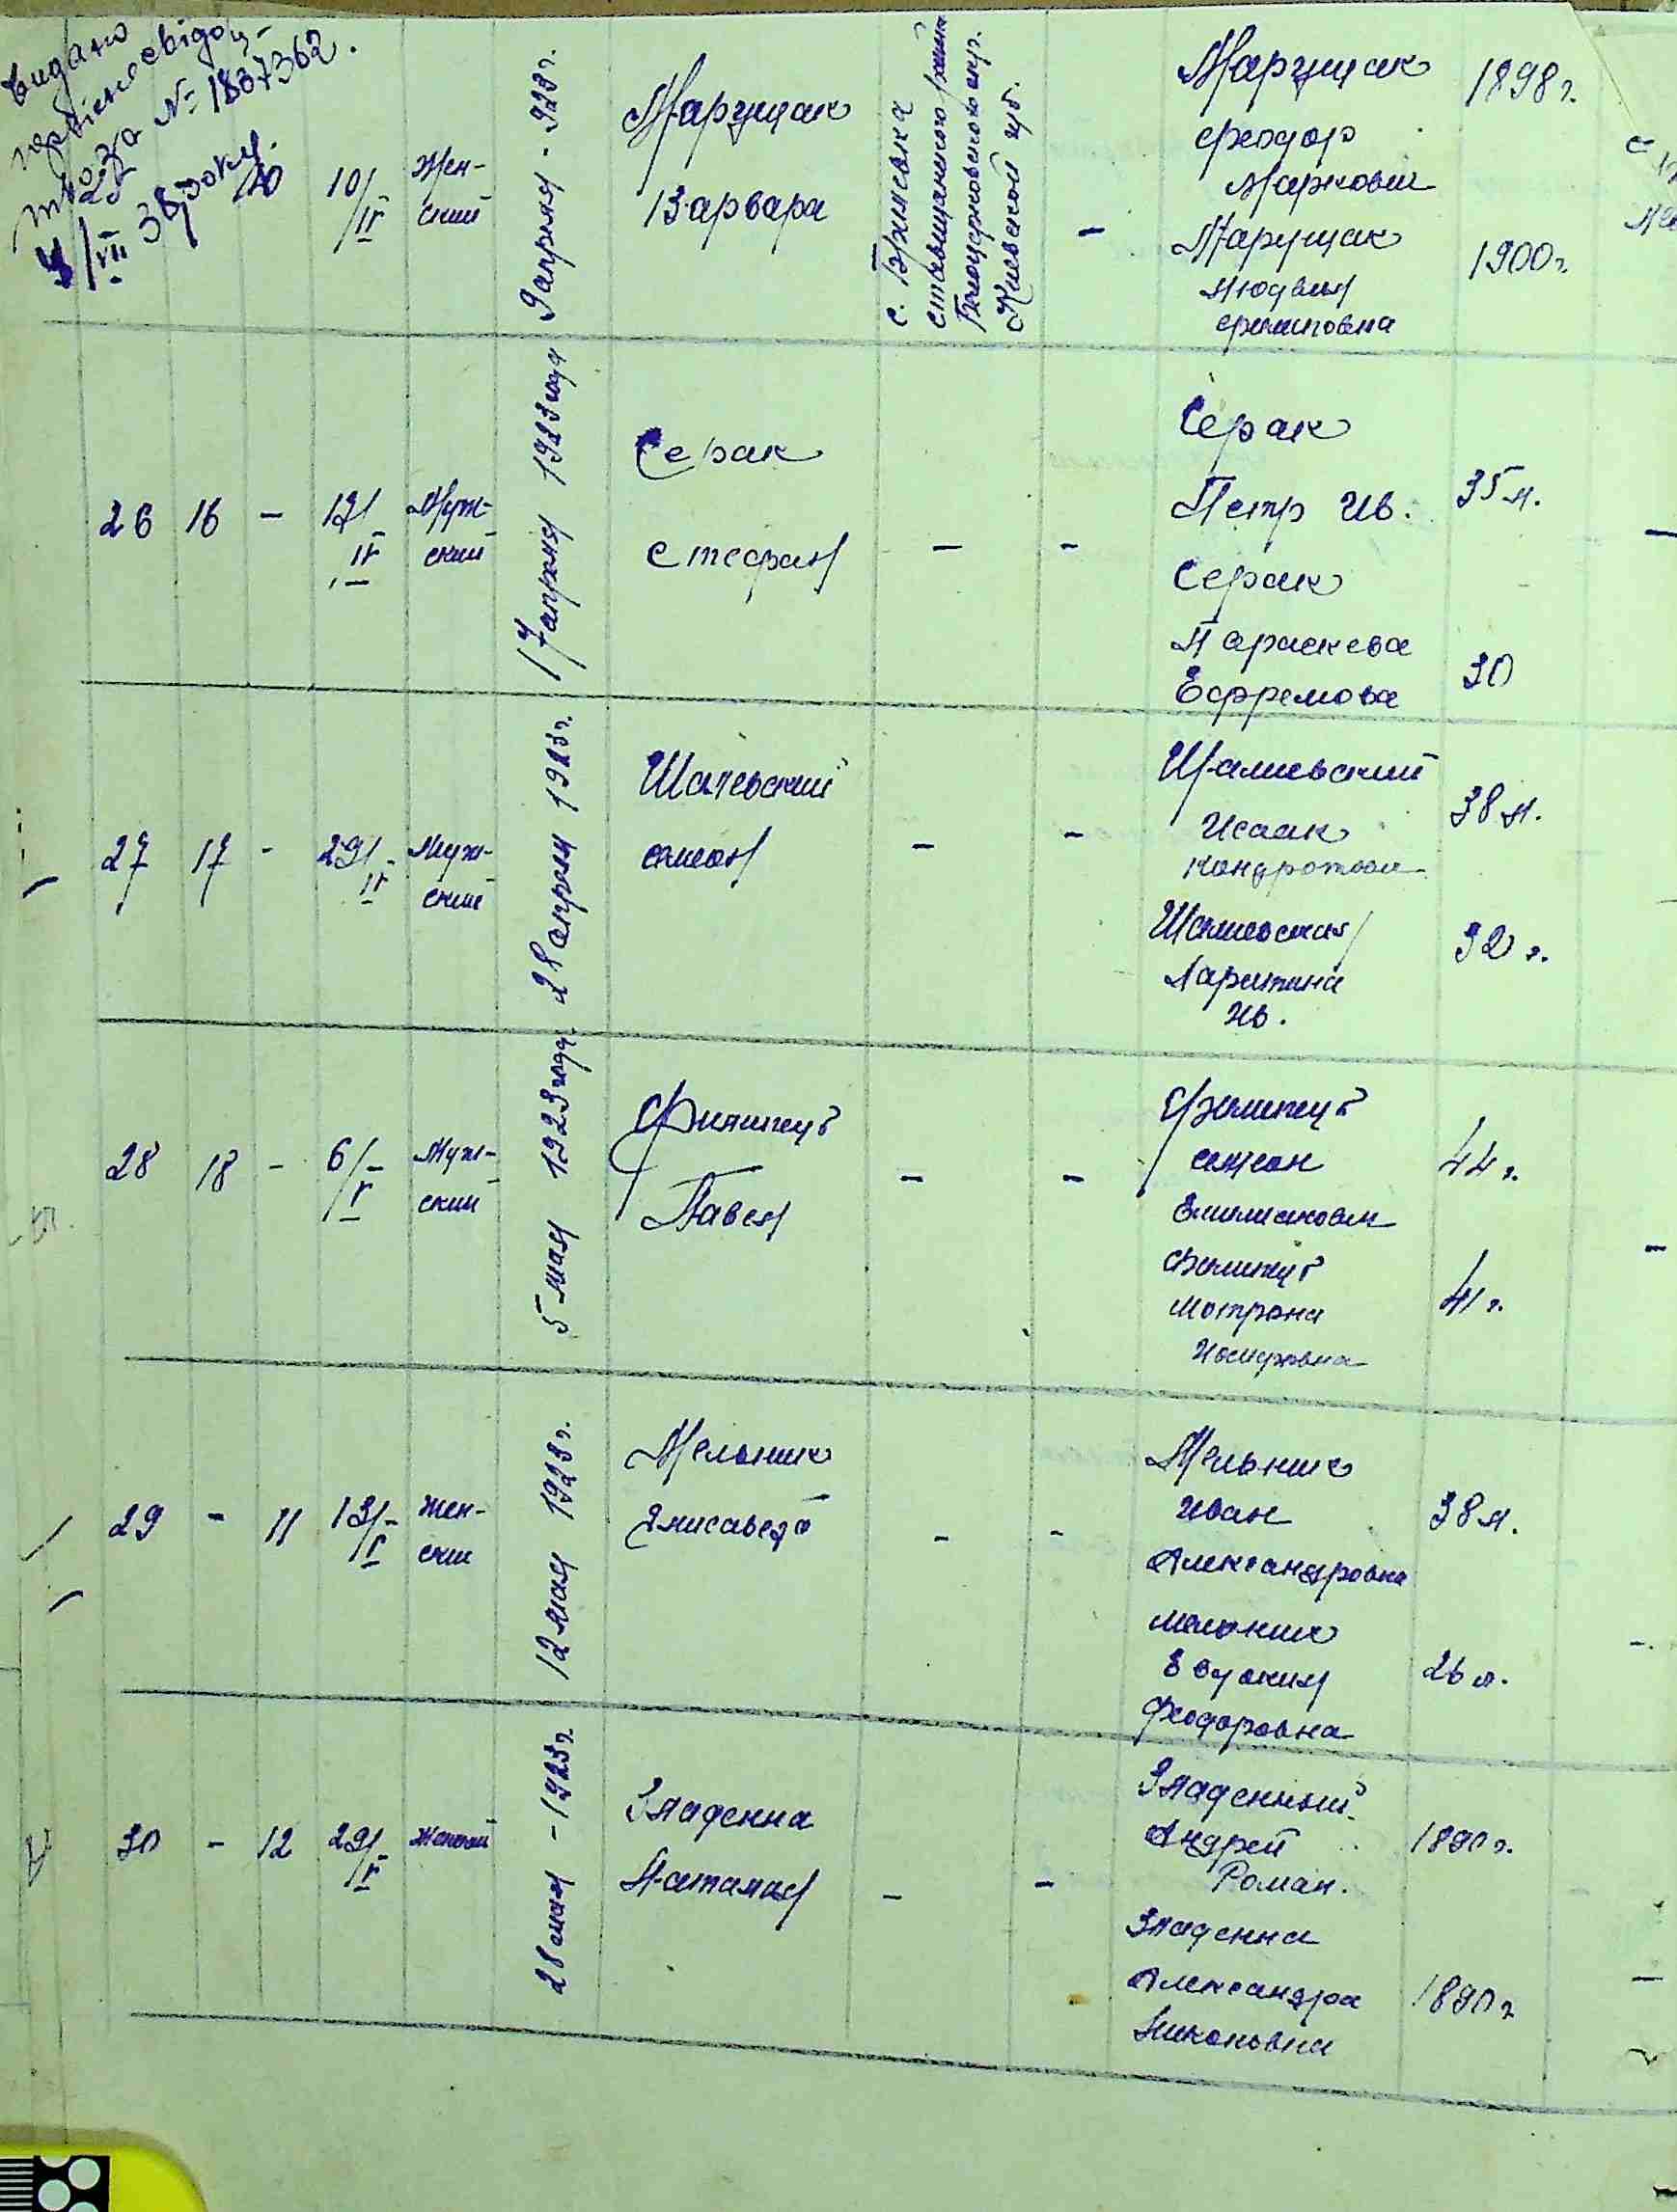 Видано
первісне свідоц-
тво за № 1837362.
4/VII 38 року.
25 10 10/IV Жен-
ский
9 апреля - 923 г.
Марущак
Варвара
с. Бржмевка
Ставищанского района
Белоцерковского окр.
Киевской губ.
-
Марущак
Феодор
Маркович
1898 г.
Марущак
Людвия
Филиповна
1900 г.
26 16 - 19/IV Муж-
ский
17 апреля 1923 года
Серак
Стефан
- -
Серак
Петр Ив.
35 л.
Серак
Параскева
Ефремова
30
27 17 - 29/IV Муж-
ский
28 апреля 1923 г.
Шалевский
симон
- -
Шалиевский
Исаак
Кондратови
38 л.
Шалиевская
Харитина
Ив.
32 г.
28 18 - 6/V Муж-
ский
5 мая 1923 года
Филипчук
Павел
- -
Филипчук
симон
Емилианович
44 г.
Филипчук
Мотрона
Иосифовна
41 г.
29 - 11 13/V Жен-
ски
12 мая 1923 г.
Мельник
Елисавета
- -
Мельник
Иван
Александровна
38 л.
Мельник
Евдокия
Феодоровна
26 л.
30 - 12 29/V Женский
28 мая - 1923 г.
Зладенна
Наталия
- -
Зладенный
Андрей
Роман.
1890 г.
Зладенна
Александра
Никоновна
1890 г